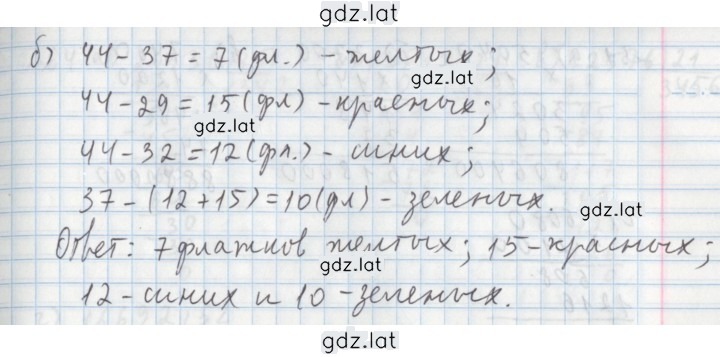 gdz.lat
б) 44 - 37 = 7 (фл.) - желтых;
gdz.lat
44 - 29 = 15 (фл) - красных;
gdz.lat
44 - 32 = 12 (фл.) - синих;
37 - (12 + 15) = 10 (фл) - зеленых.
gdz.lat
Ответ: 7 флажков желтых; 15 - красных;
gdz.lat
12 - синих и 10 - зеленых.
gdz.lat